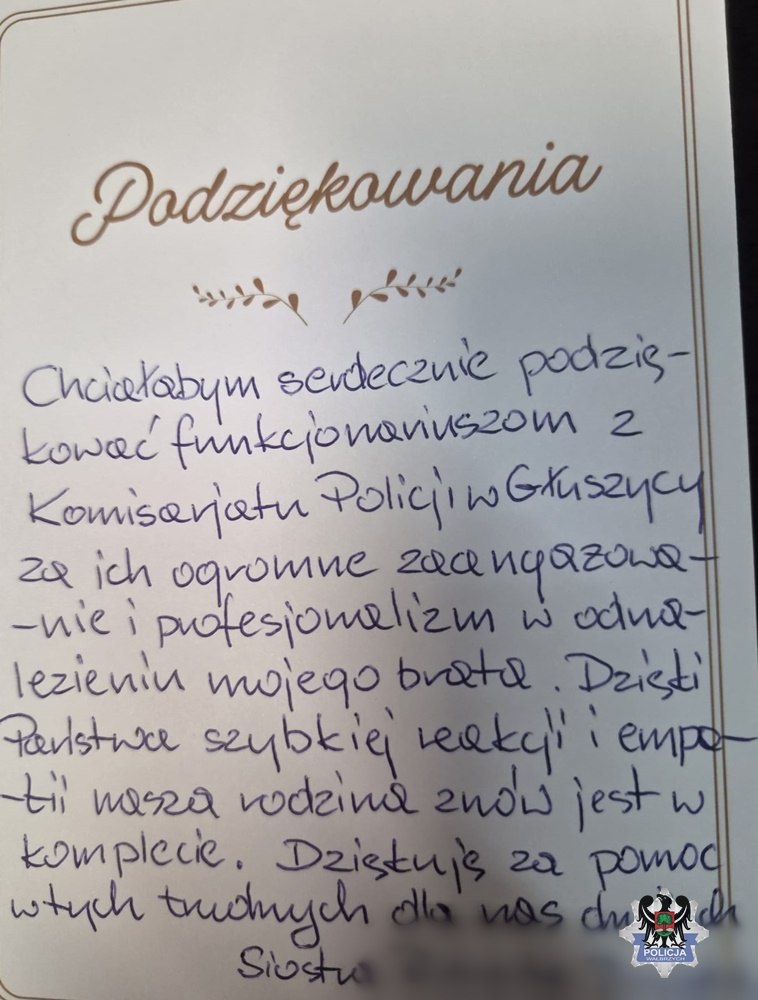 Podziękowania
Chciałabym serdecznie podzię-
kować funkcjonariuszom z
Komisarjatu Policji w Głuszycy
za ich ogromne zaangażowa-
-nie i profesjonalizm w odna-
lezieniu mojego brata. Dzięki
Państwa szybkiej reakcji i empa-
-tii nasza rodzina znów jest w
komplecie. Dziękuję za pomoc
w tych trudnych dla nas
Siostra
POLICJA
WAŁBRZYCH